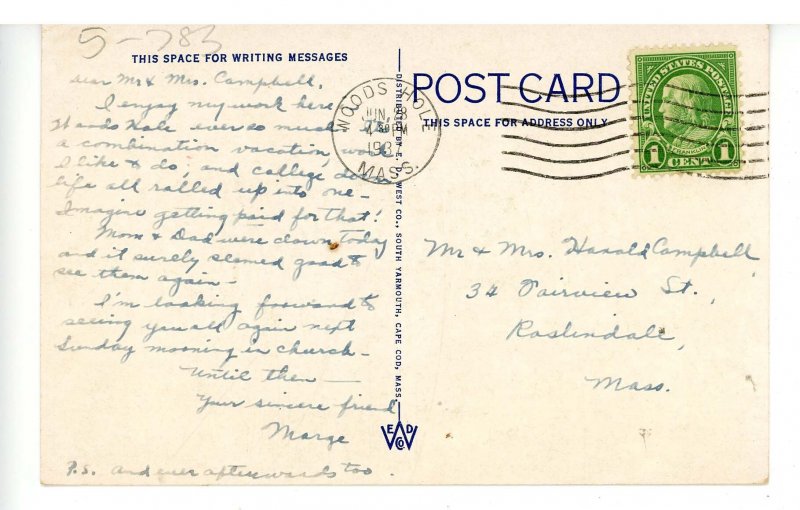 5-783
THIS SPACE FOR WRITING MESSAGES
Dear Mr & Mrs. Campbell,
I enjoy my work here
Woods Hole ever so much. It's
a combination vacation, work
I like to do, and college dorm
life all rolled up into one -
Imagine getting paid for that!
Mom & Dad were down today
and it surely seemed good to
see them again -
I'm looking forward to
seeing you all again next
Sunday morning in church -
Until then —
Your sincere friend
Marge
P.S. and ever afterwards too.
DISTRIBUTED BY E. D. WEST CO., SOUTH YARMOUTH, CAPE COD, MASS.
E D
W
CO
POST CARD
THIS SPACE FOR ADDRESS ONLY
WOODS HOLE
JUN 28
PM
1937
MASS.
UNITED STATES POSTAGE
FRANKLIN
1 CENT 1
Mr & Mrs. Harold Campbell
34 Fairview St.,
Roslindale,
Mass.